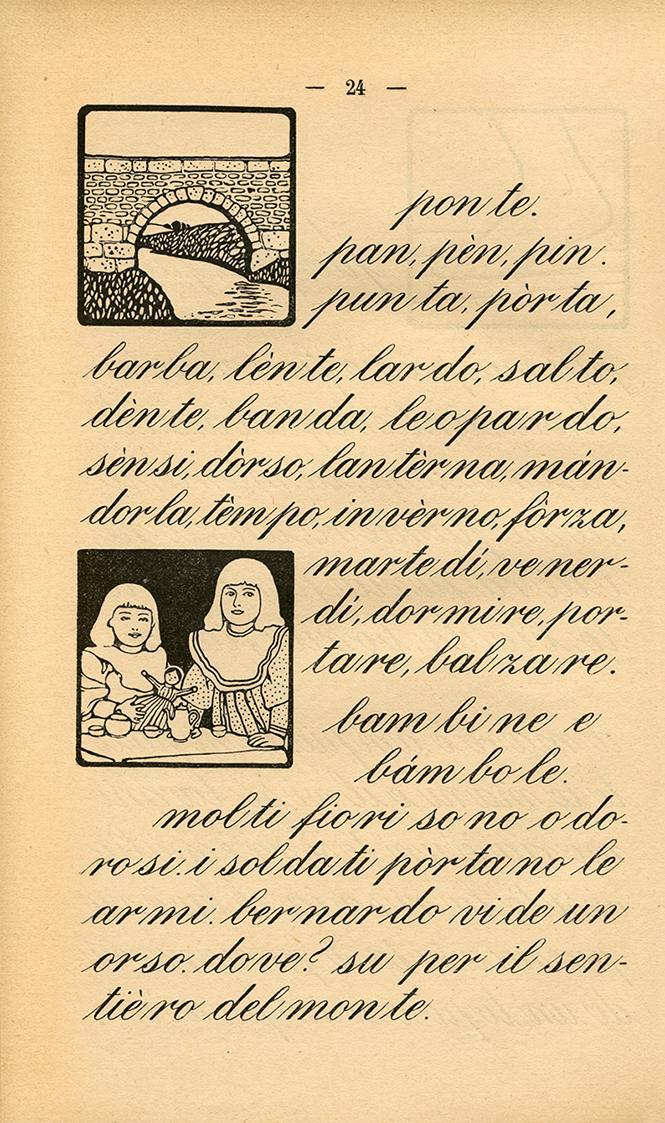 — 24 —
pon te.
pan, pèn, pin.
pun ta, pòr ta,
bar ba, lèn te, lar do, sal to,
dèn te, ban da, le o par do,
sèn si, dòr so, lan tèr na, mán-
dor la, tèm po, in vèr no, fòr za,
mar te dí, ve ner-
dí, dor mi re, por-
ta re, bal za re.
bam bi ne e
bám bo le.
mol ti fio ri so no o do-
ro si. i sol da ti pòr ta no le
ar mi. ber nar do vi de un
or so. do ve? su per il sen-
tiè ro del mon te.